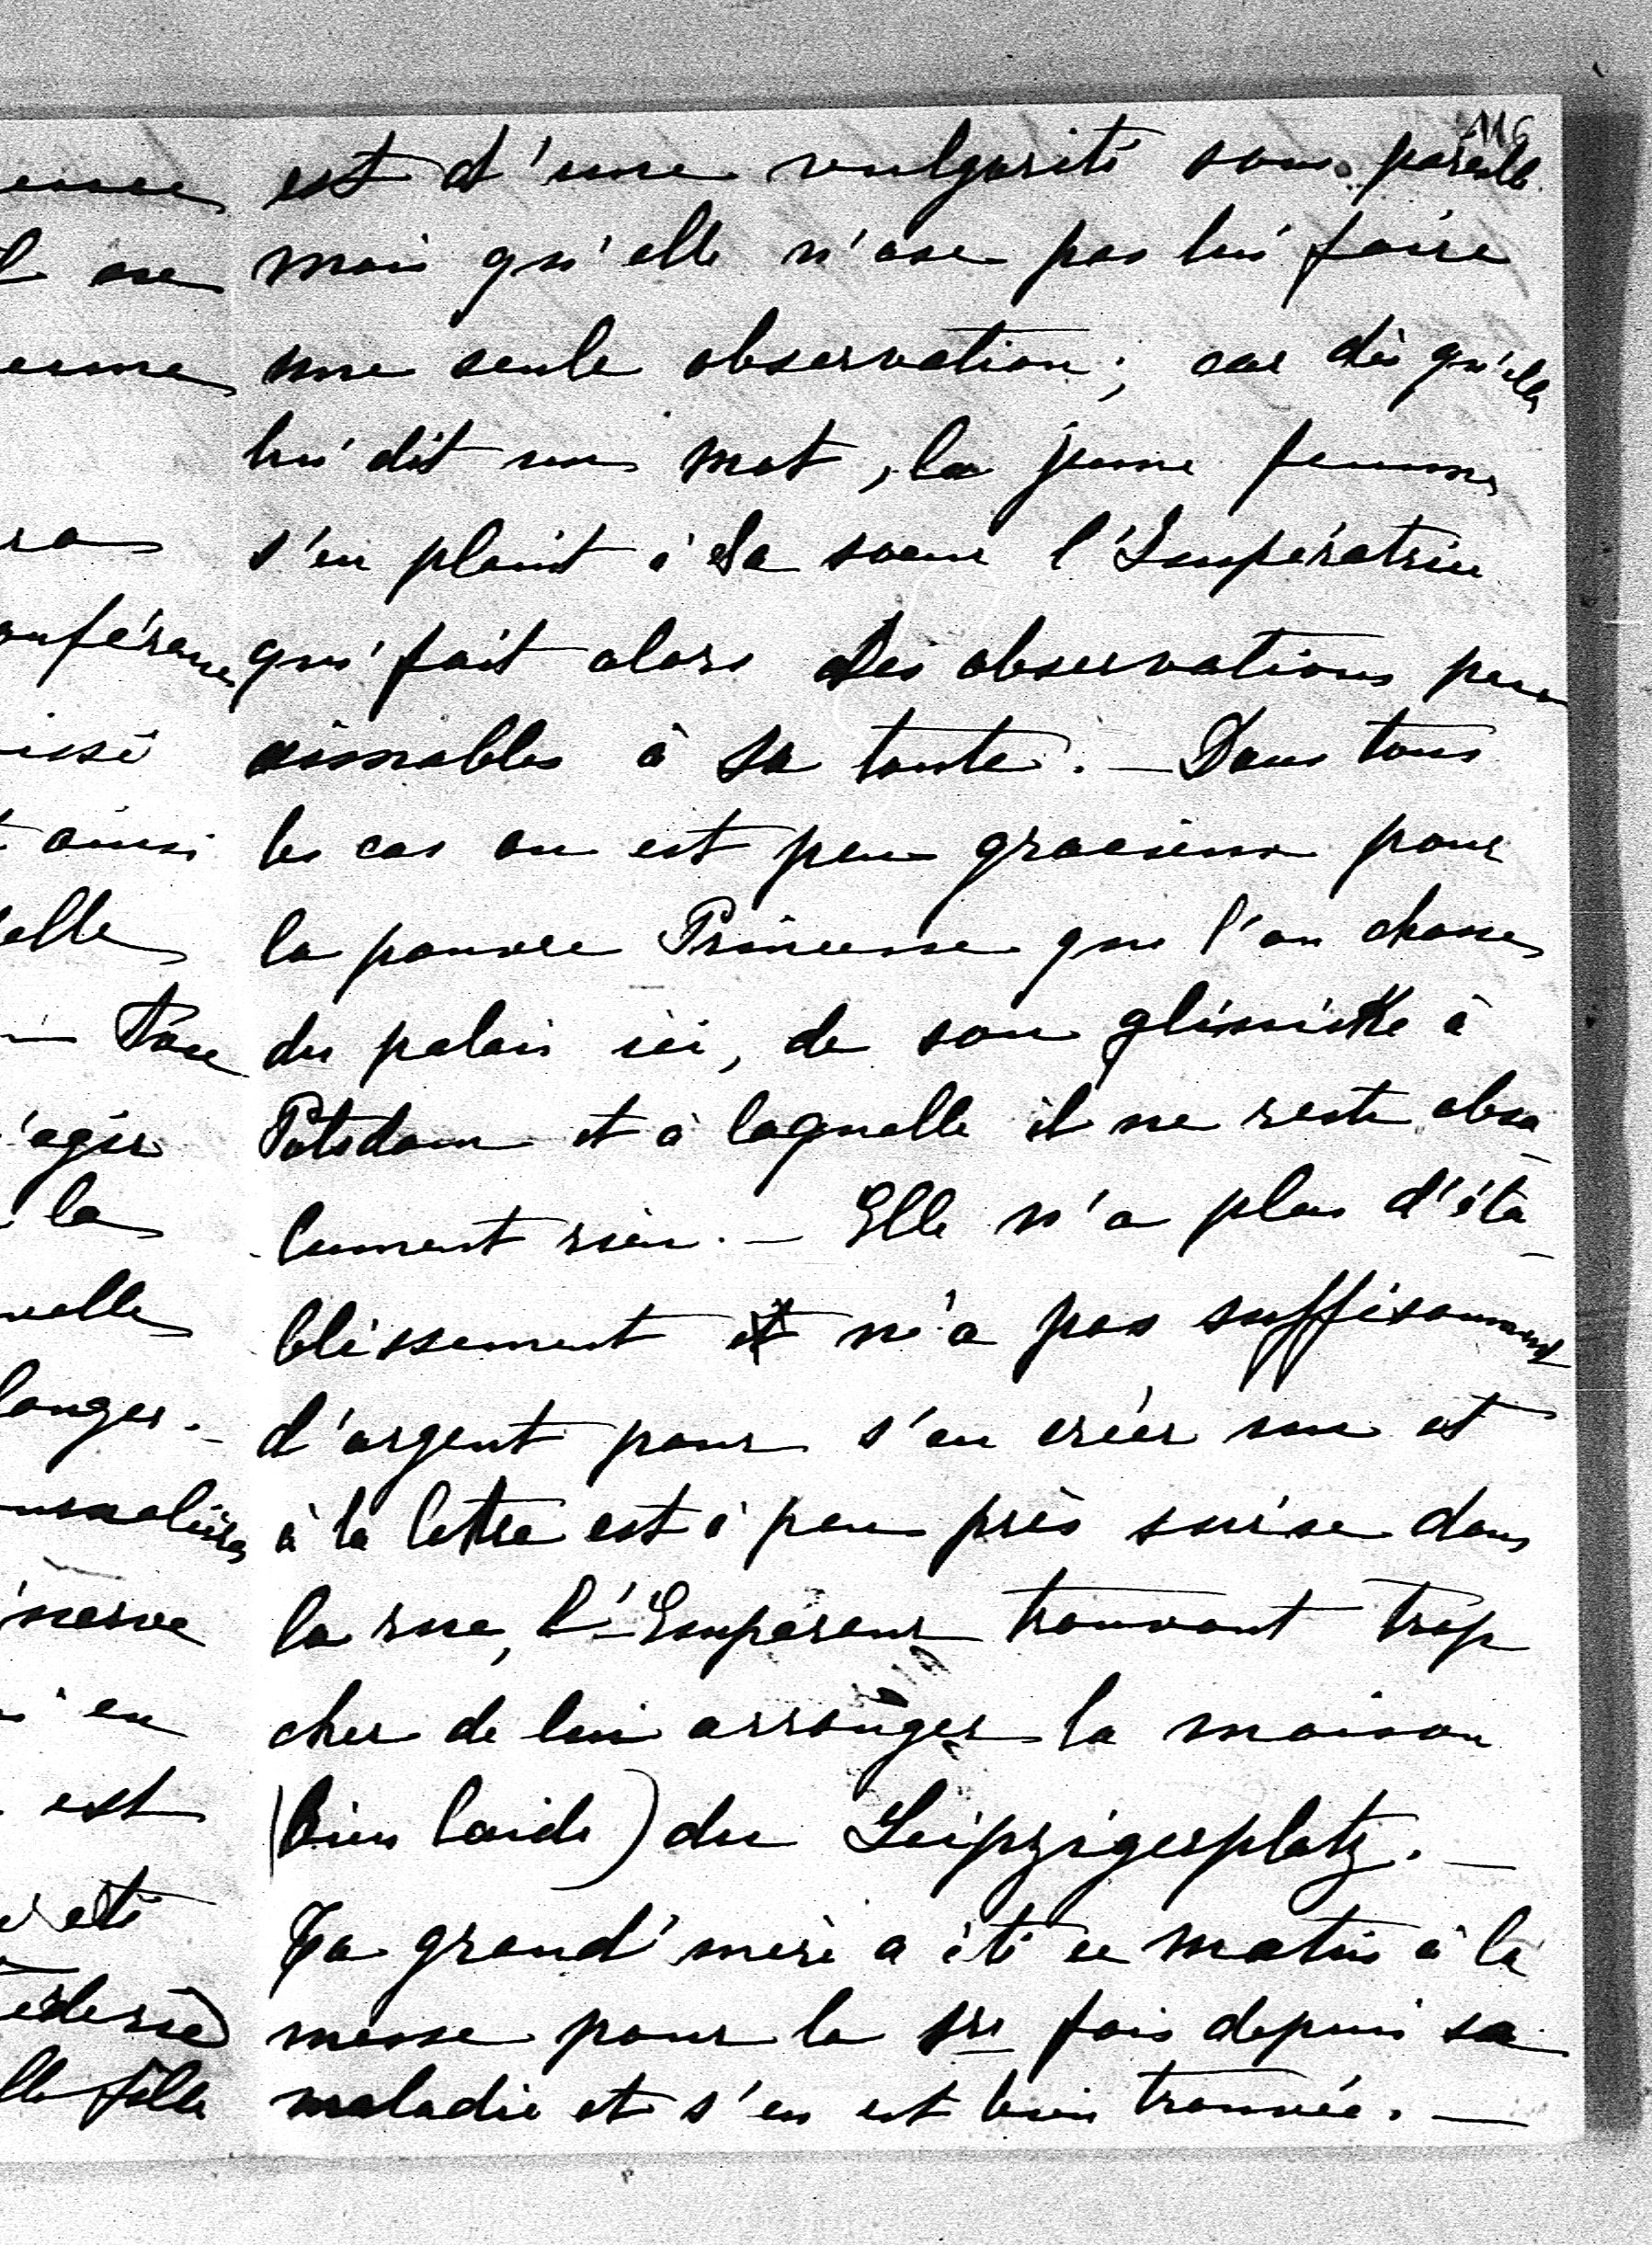 116
est d'une vulgarité sans pareille
mais qu'elle n'ose pas lui faire
une seule observation; car dès qu'elle
lui dit un mot, la jeune femme
s'en plaint à sa sœur l'Impératrice
qui fait alors des observations peu
aimables à sa tante. — Dans tous
les cas on est peu gracieux pour
la pauvre Princesse que l'on chasse
du palais ici, de son glinicke à
Potsdam et à laquelle il ne reste abso-
lument rien. — Elle n'a plus d'éta-
blissement et n'a pas suffisamment
d'argent pour s'en créer un et
à la lettre est à peu près mise dans
la rue, l'Empereur trouvant trop
cher de lui arranger la maison
(bien laide) du Leipzigerplatz. —
Ta grand'mère a été ce matin à la
messe pour la 1re fois depuis sa
maladie et s'en est bien trouvée. —